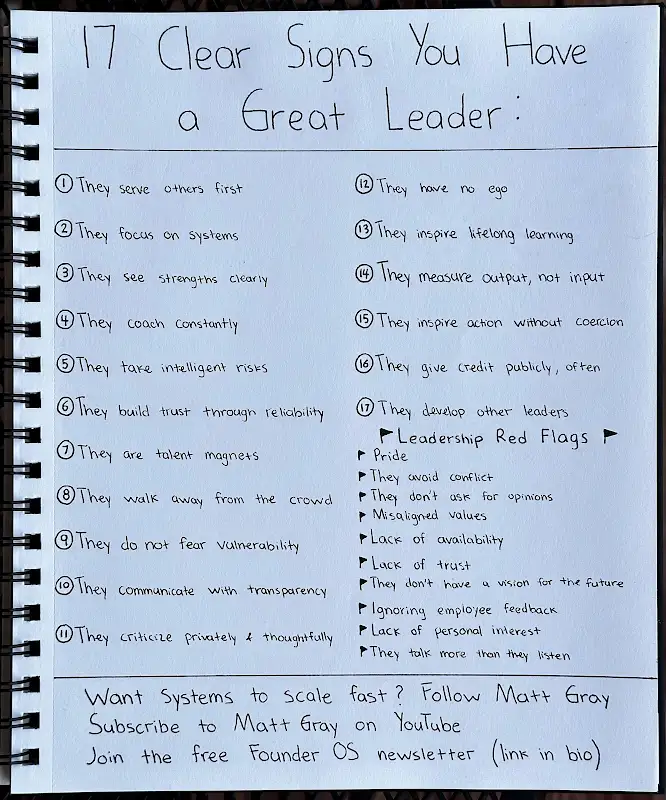 17 Clear Signs You Have
a Great Leader:
① They serve others first
② They focus on systems
③ They see strengths clearly
④ They coach constantly
⑤ They take intelligent risks
⑥ They build trust through reliability
⑦ They are talent magnets
⑧ They walk away from the crowd
⑨ They do not fear vulnerability
⑩ They communicate with transparency
⑪ They criticize privately & thoughtfully
⑫ They have no ego
⑬ They inspire lifelong learning
⑭ They measure output, not input
⑮ They inspire action without coercion
⑯ They give credit publicly, often
⑰ They develop other leaders
Leadership Red Flags
Pride
They avoid conflict
They don't ask for opinions
Misaligned values
Lack of availability
Lack of trust
They don't have a vision for the future
Ignoring employee feedback
Lack of personal interest
They talk more than they listen
Want Systems to scale fast? Follow Matt Gray
Subscribe to Matt Gray on YouTube
Join the free Founder OS newsletter (link in bio)